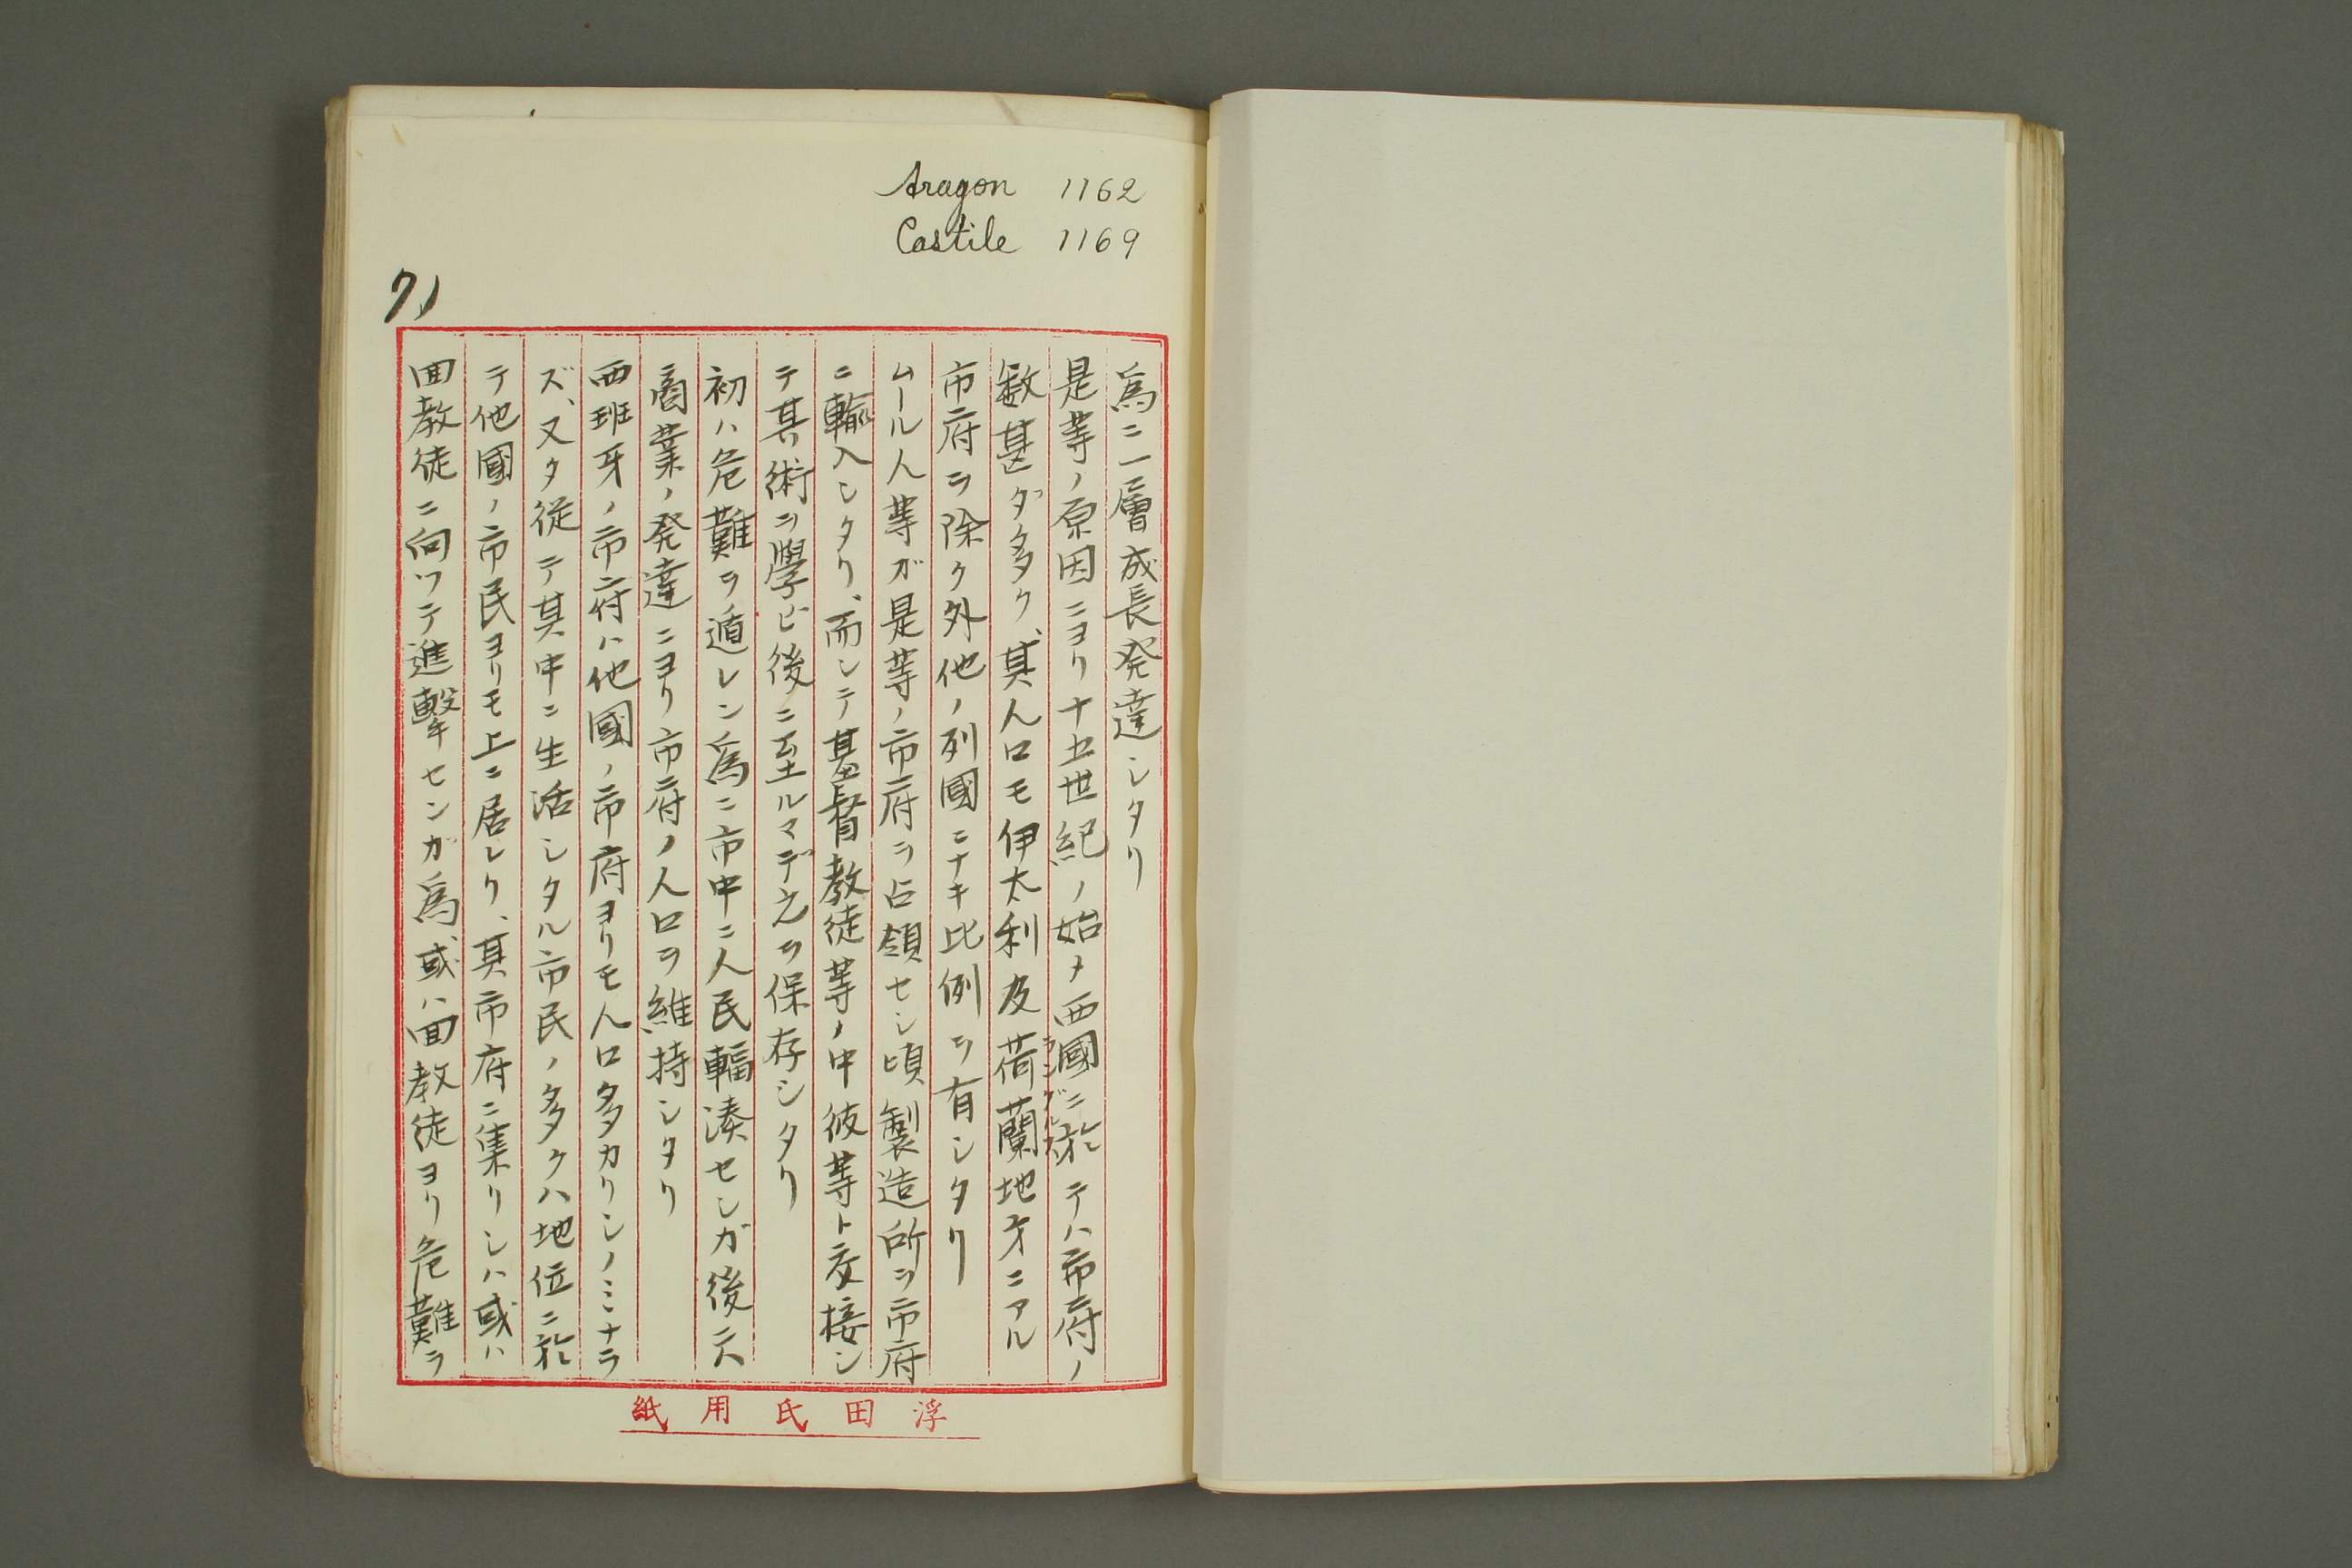 Aragon 1162
Castile 1169
71
為ニ一層成長発達シタリ
是等ノ原因ニヨリ十五世紀ノ始メ西國ニ於テハ市府ノ
数甚ダ多ク、其人口モ伊太利及荷蘭地方ニアル
市府ヲ除ク外他ノ列國ニナキ比例ヲ有シタリ
ムール人等ガ是等ノ市府ヲ占領セシ頃製造所ヲ市府
ニ輸入シタリ、而シテ基督教徒等ノ中彼等ト交接シ
テ其術ヲ學ビ後ニ至ルマデ之ヲ保存シタリ
初ハ危難ヲ遁レン為ニ市中ニ人民輻湊セシガ後ニハ
商業ノ発達ニヨリ市府ノ人口ヲ維持シタリ
西班牙ノ市府ハ他國ノ市府ヨリモ人口多カリシノミナラ
ズ、又タ従テ其中ニ生活シタル市民ノ多クハ地位ニ於
テ他國ノ市民ヨリモ上ニ居レリ、其市府ニ集リシハ或ハ
回教徒ニ向ツテ進撃センガ為、或ハ回教徒ヨリ危難ヲ
浮田氏用紙